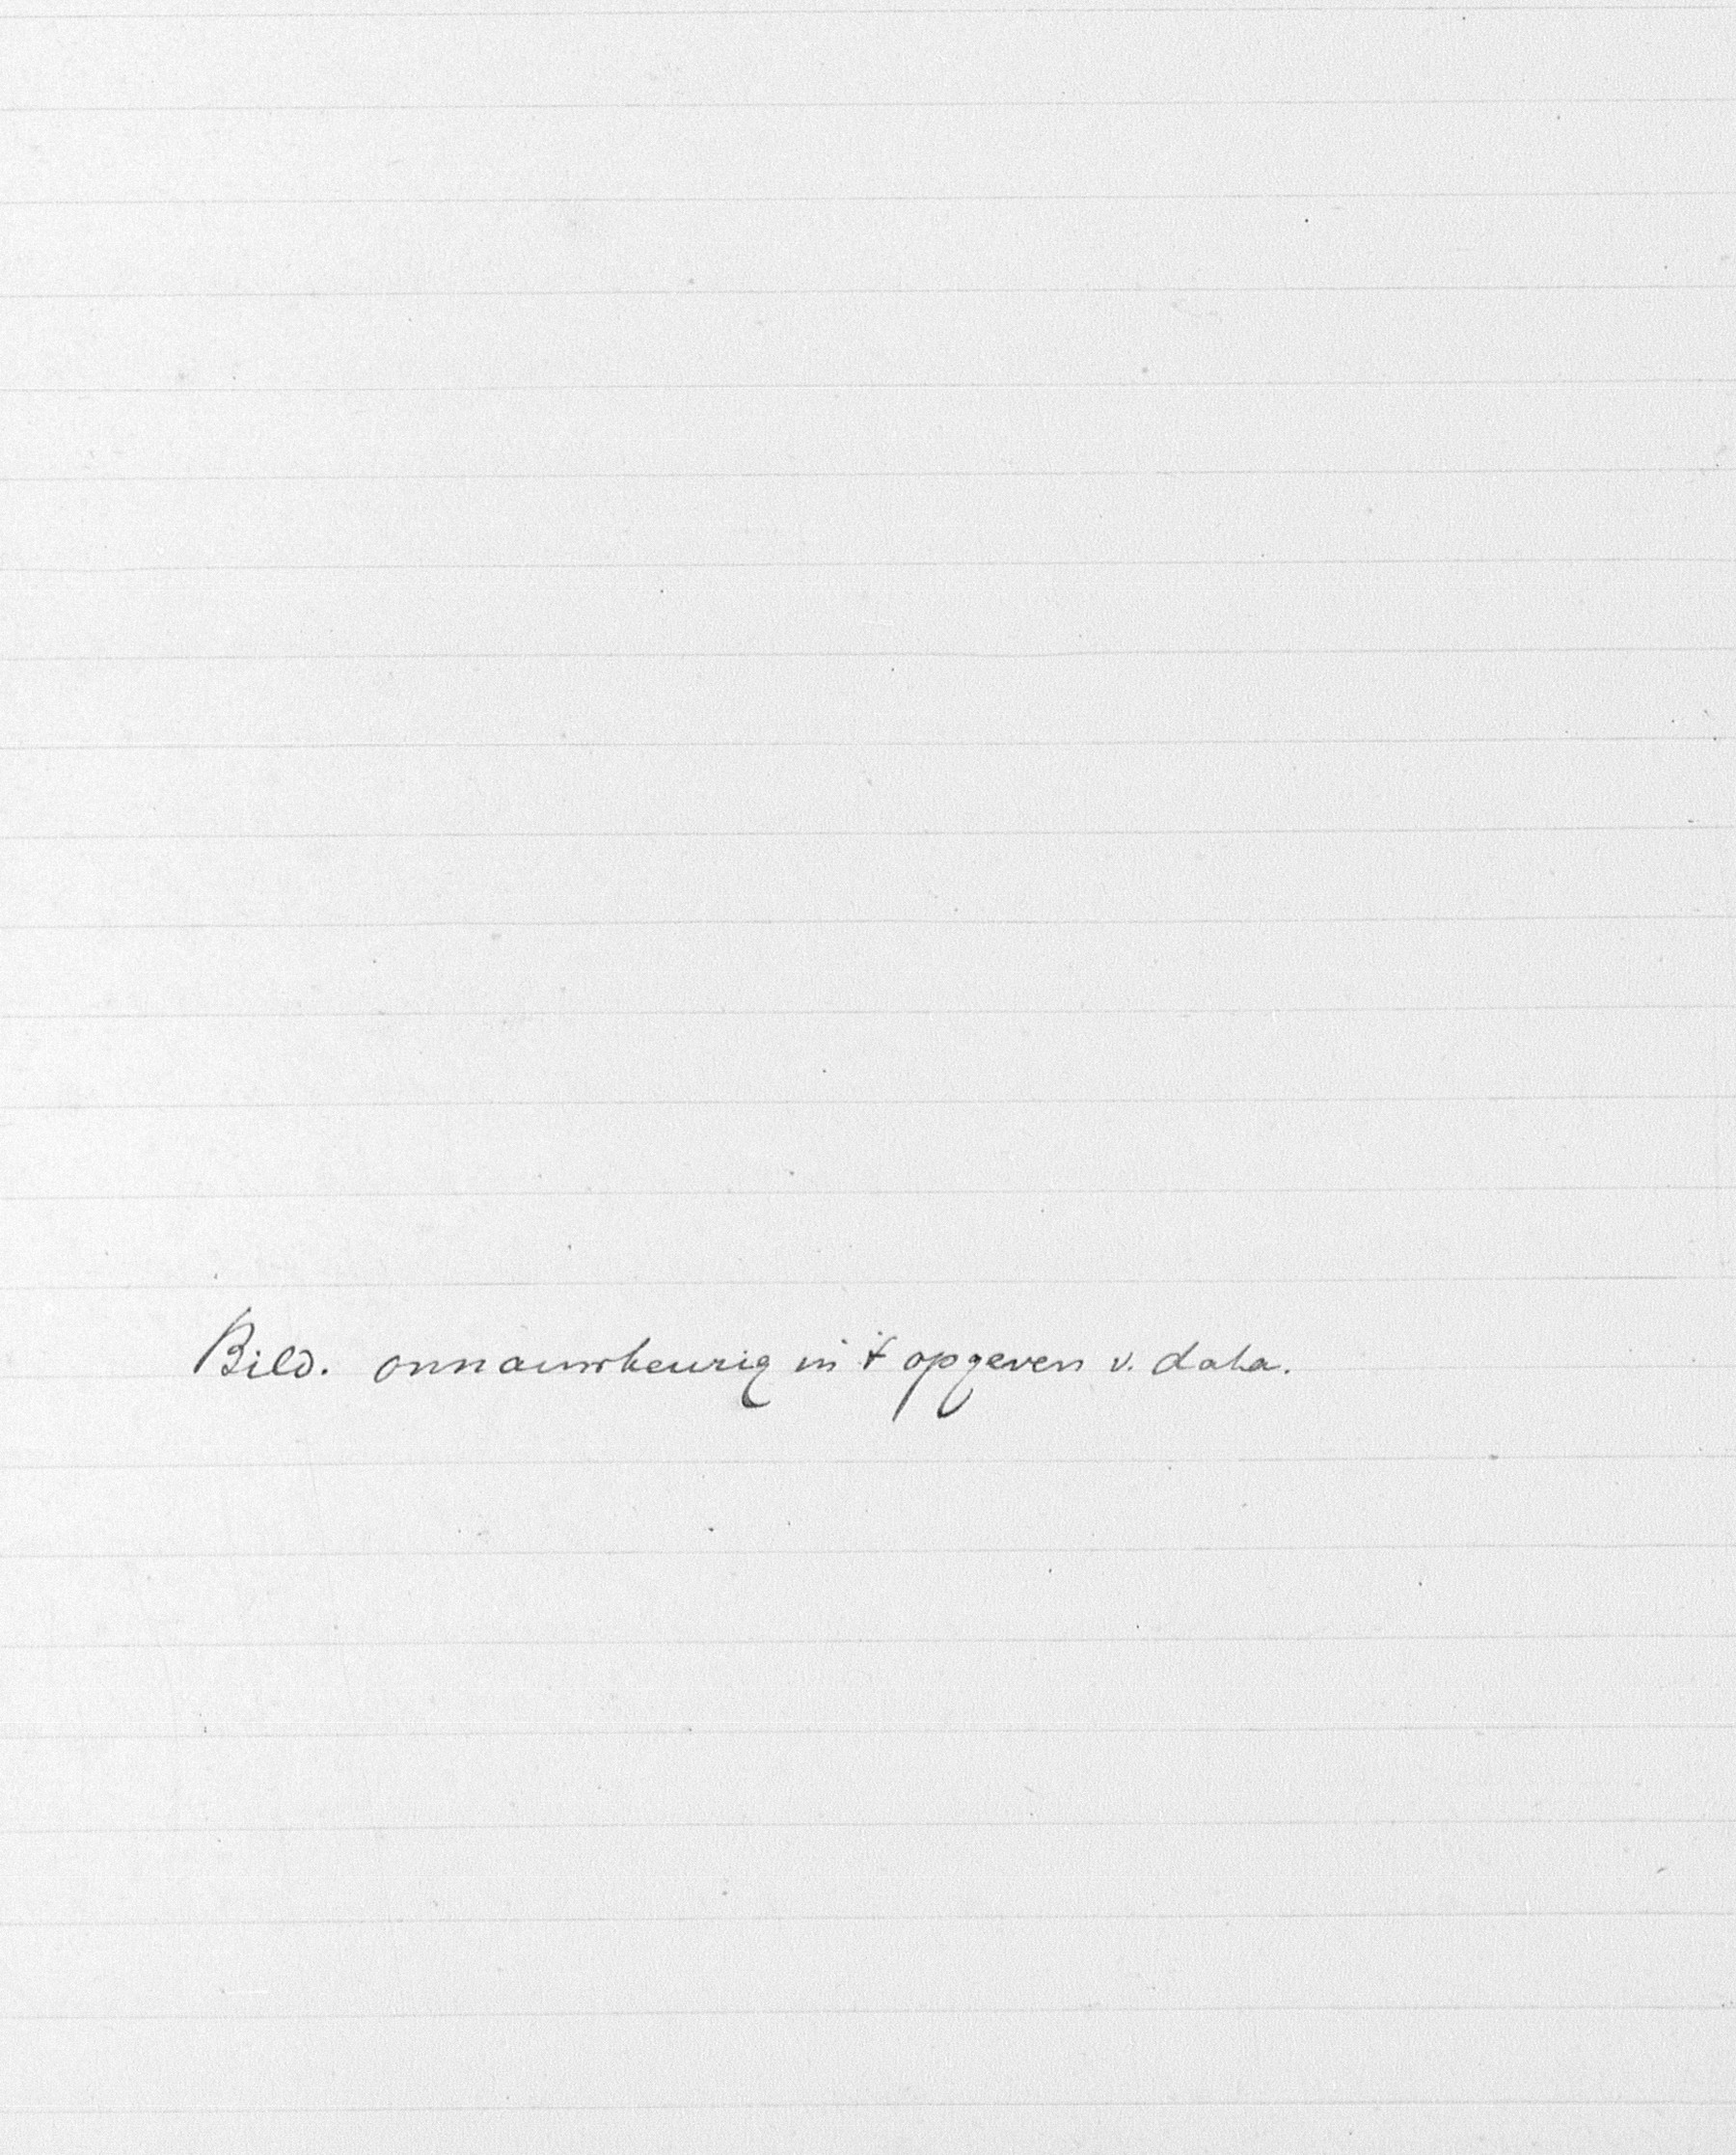 Bild. onnauwkeurig in 't opgeven v. data.